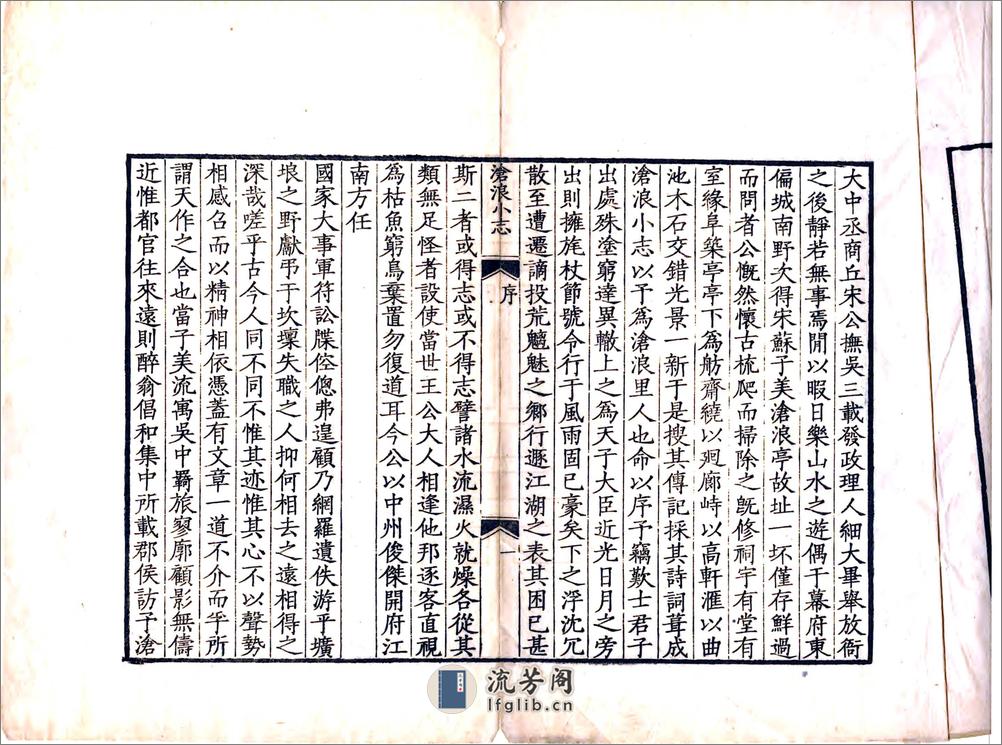 大中丞商丘宋公撫吳三載發政理人細大畢舉放衙
之後靜若無事焉閒以暇日樂山水之遊偶于幕府東
偏城南野次得宋蘇子美滄浪亭故址一坏僅存鮮過
而問者公慨然懷古梳爬而掃除之旣修祠宇有堂有
室緣阜築亭亭下爲舫齋繞以廻廊峙以高軒滙以曲
池木石交錯光景一新于是搜其傳記採其詩詞葺成
滄浪小志以予爲滄浪里人也命以序予竊歎士君子
出處殊塗窮達異轍上之爲天子大臣近光日月之旁
出則擁旄杖節號令行于風雨固已豪矣下之浮沈冗
散至遭遷謫投荒魑魅之鄉行遯江湖之表其困已甚
滄浪小志
序
一
斯二者或得志或不得志譬諸水流濕火就燥各從其
類無足怪者設使當世王公大人相逢他邦逐客直視
爲枯魚窮鳥棄置勿復道耳今公以中州俊傑開府江
南方任
國家大事軍符訟牒倥傯弗遑顧乃網羅遺佚游乎壙
埌之野獻弔于坎壈失職之人抑何相去之遠相得之
深哉嗟乎古今人同不同不惟其迹惟其心不以聲勢
相感召而以精神相依憑蓋有文章一道不介而孚所
謂天作之合也當子美流寓吳中羇旅寥廓顧影無儔
近惟都官往來遠則醉翁倡和集中所載郡侯訪子滄
流芳阁
lfglib.cn